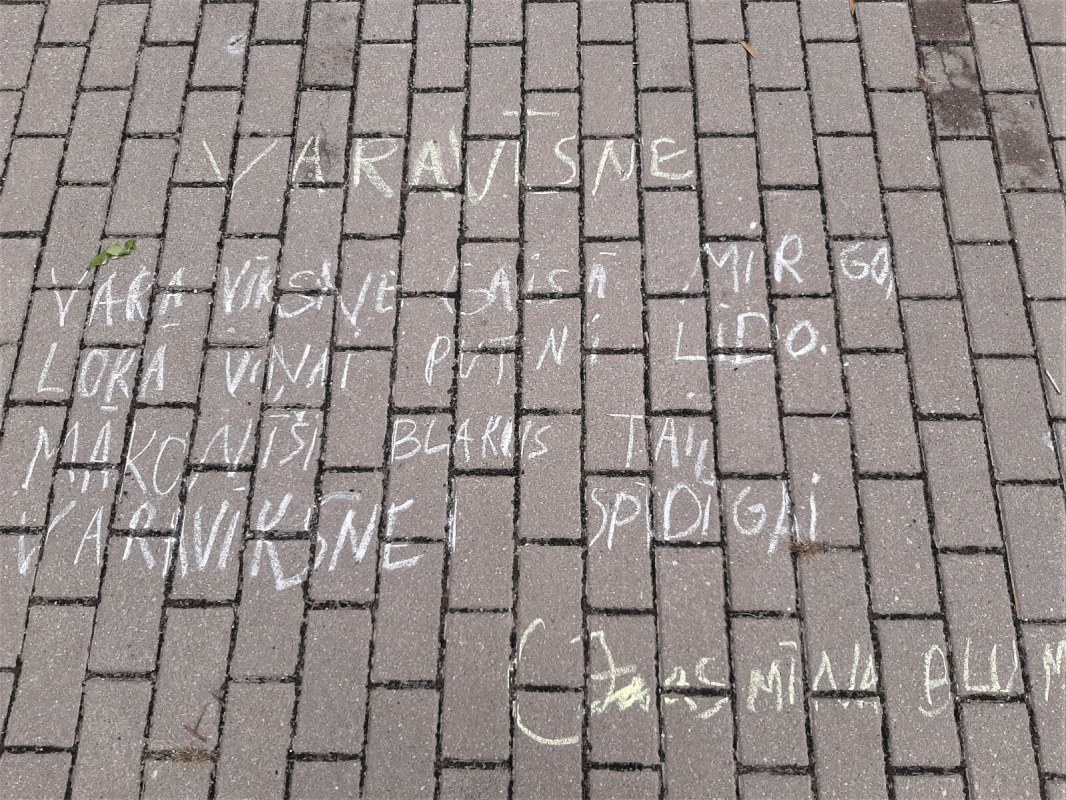 VARAVĪSNE
VARAVĪKSŅE GAISĀ MIRGO,
LOKĀ VIŅAI PUTNI LIDO.
MĀKONĪŠI BLAKUS TAI,
VARAVĪKŠNEI SPĪDIGAI
JASMĪNA BLUM